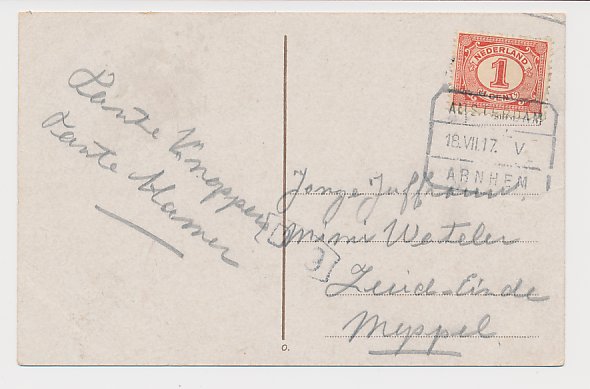 Tante Knopper
Tante Mamer
NEDERLAND
1
CENT
AMSTERDAM
18.VII.17. V
ARNHEM
Jonge Juffrouw
Mina Weteler
Zuid-Einde
Meppel
O.